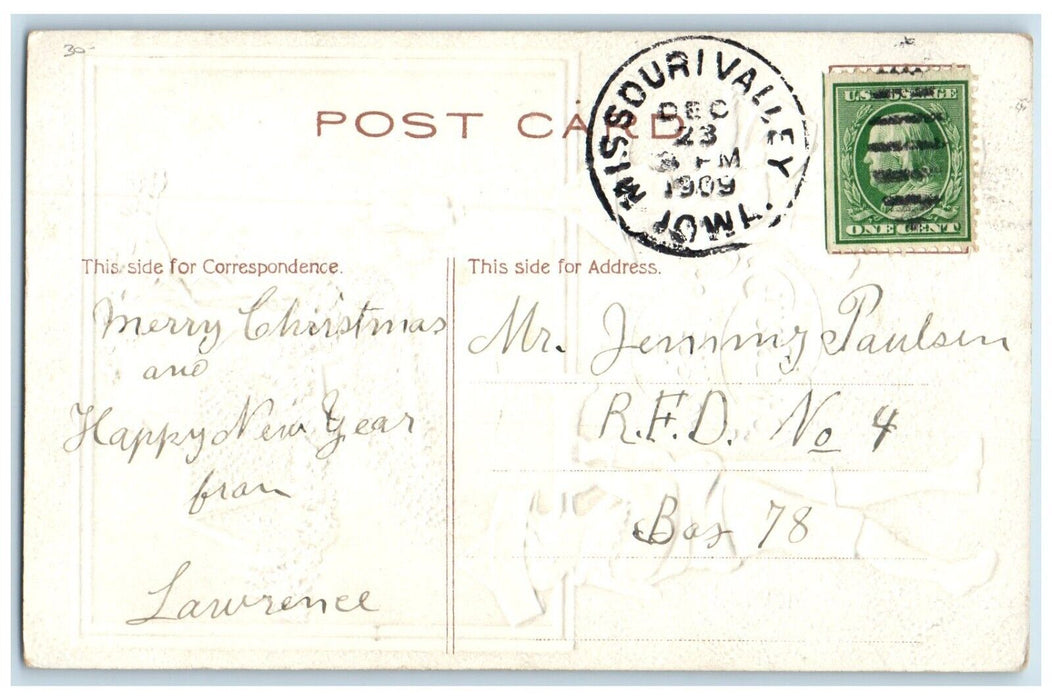 30-
POST CARD
MISSOURI VALLEY.
DEC
23
PM
1909
IOWA.
U.S. POSTAGE
ONE CENT
This side for Correspondence.
Merry Christmas
and
Happy New Year
from
Lawrence
This side for Address.
Mr. Jemmy Paulsen
R.F.D. No 4
Box 78